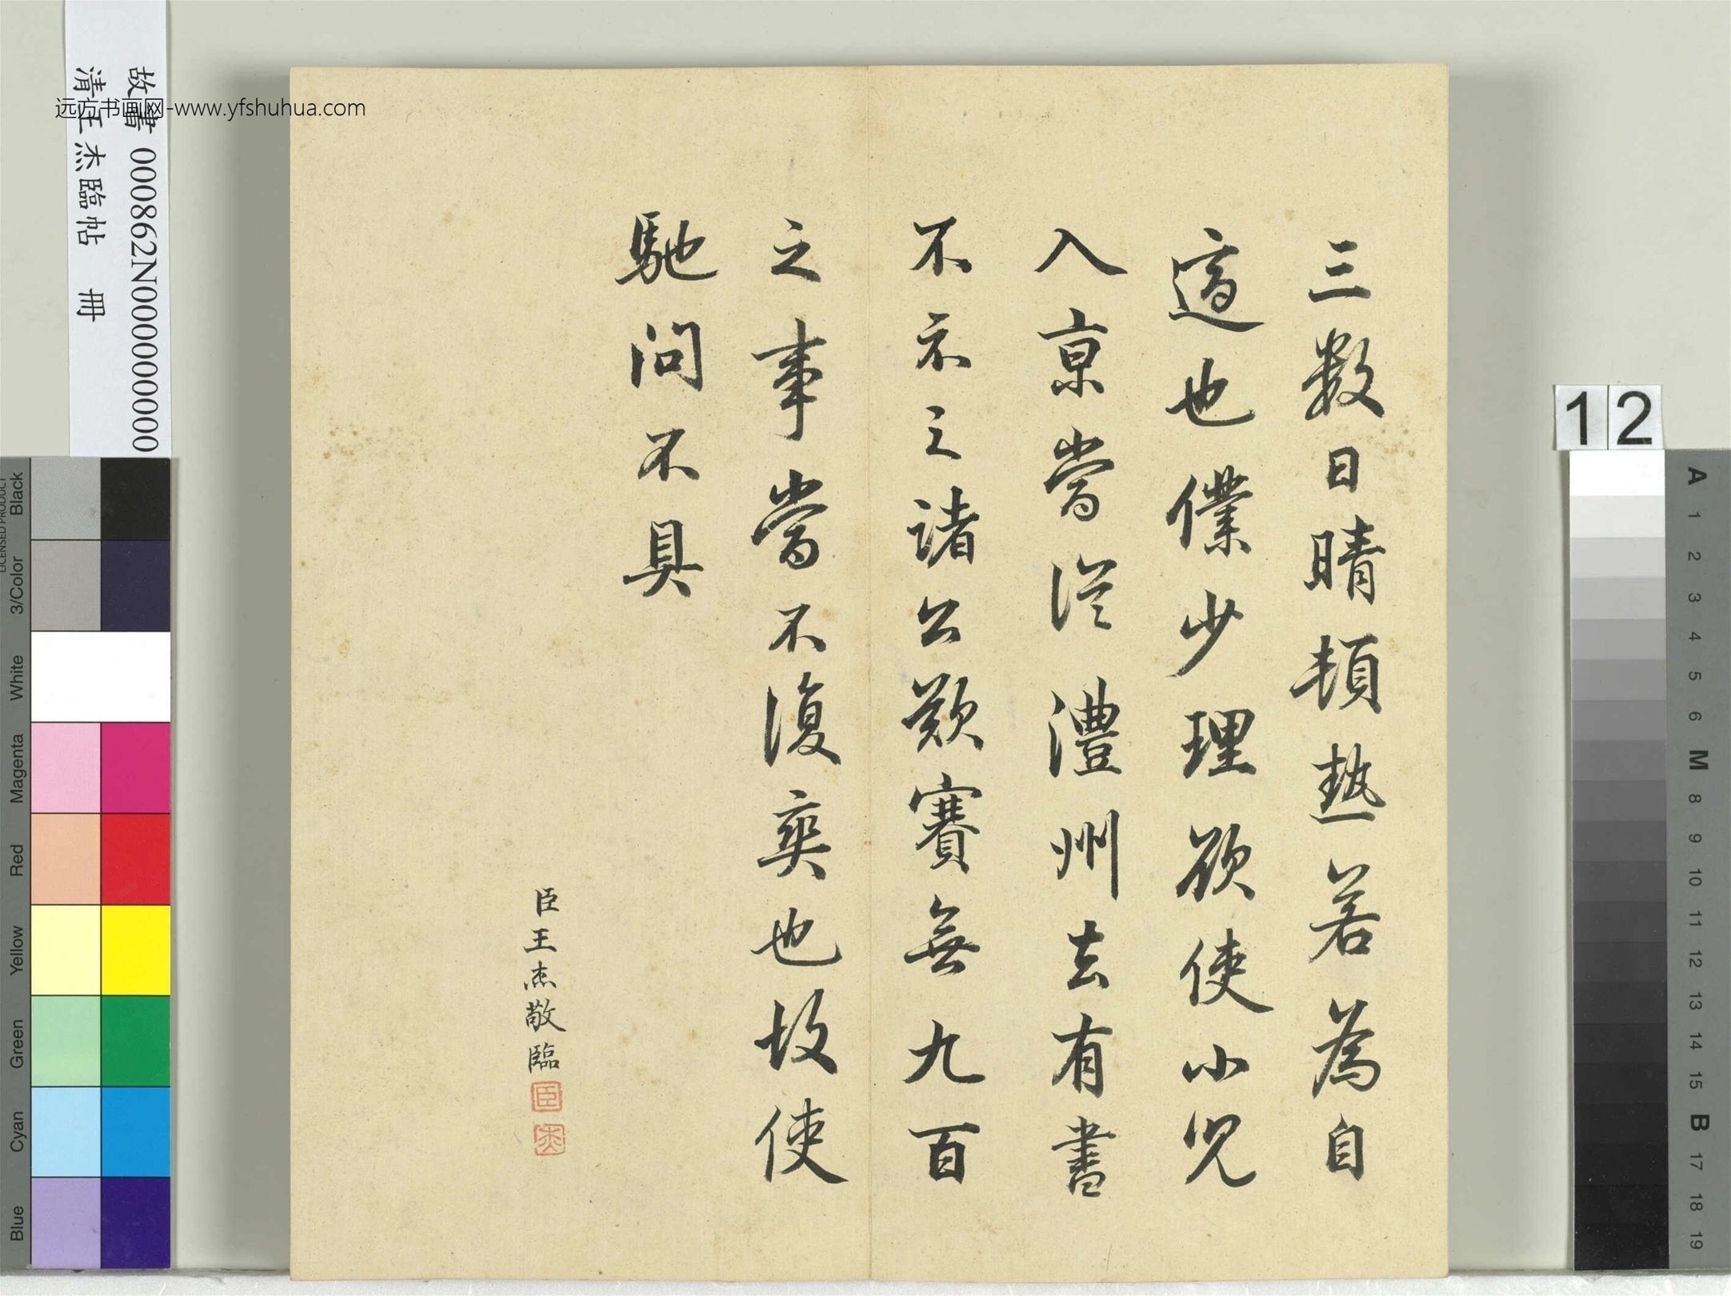 三數日晴頓熱若為自
適也僕少理欲使小兒
入京當從澧州去有書
不示之諸公歎賽無九百
之事當不復爽也故使
馳問不具
臣王杰敬臨
臣
杰
故書 000862N000000000
清王杰臨帖 冊
远方书画网-www.yfshuhua.com
12
LICENSED PRODUCT
Black
3/Color
White
Magenta
Red
Yellow
Green
Cyan
Blue
A
1
2
3
4
5
6
M
8
9
10
11
12
13
14
15
B
17
18
19